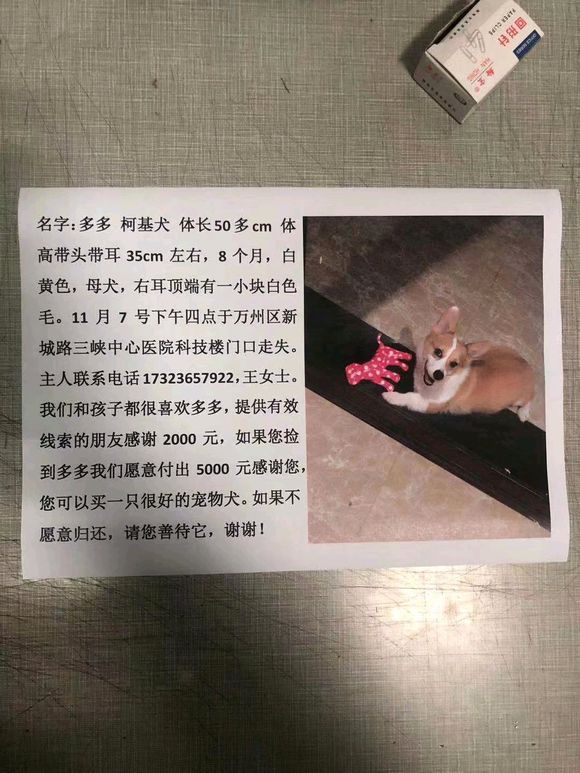 回形针
PAPER CLIPS
OFFICE SERIES
名字：多多 柯基犬 体长50多cm 体
高带头带耳 35cm 左右，8 个月，白
黄色，母犬，右耳顶端有一小块白色
毛。11 月 7 号下午四点于万州区新
城路三峡中心医院科技楼门口走失。
主人联系电话 17323657922，王女士。
我们和孩子都很喜欢多多，提供有效
线索的朋友感谢 2000 元，如果您捡
到多多我们愿意付出 5000 元感谢您，
您可以买一只很好的宠物犬。如果不
愿意归还，请您善待它，谢谢！